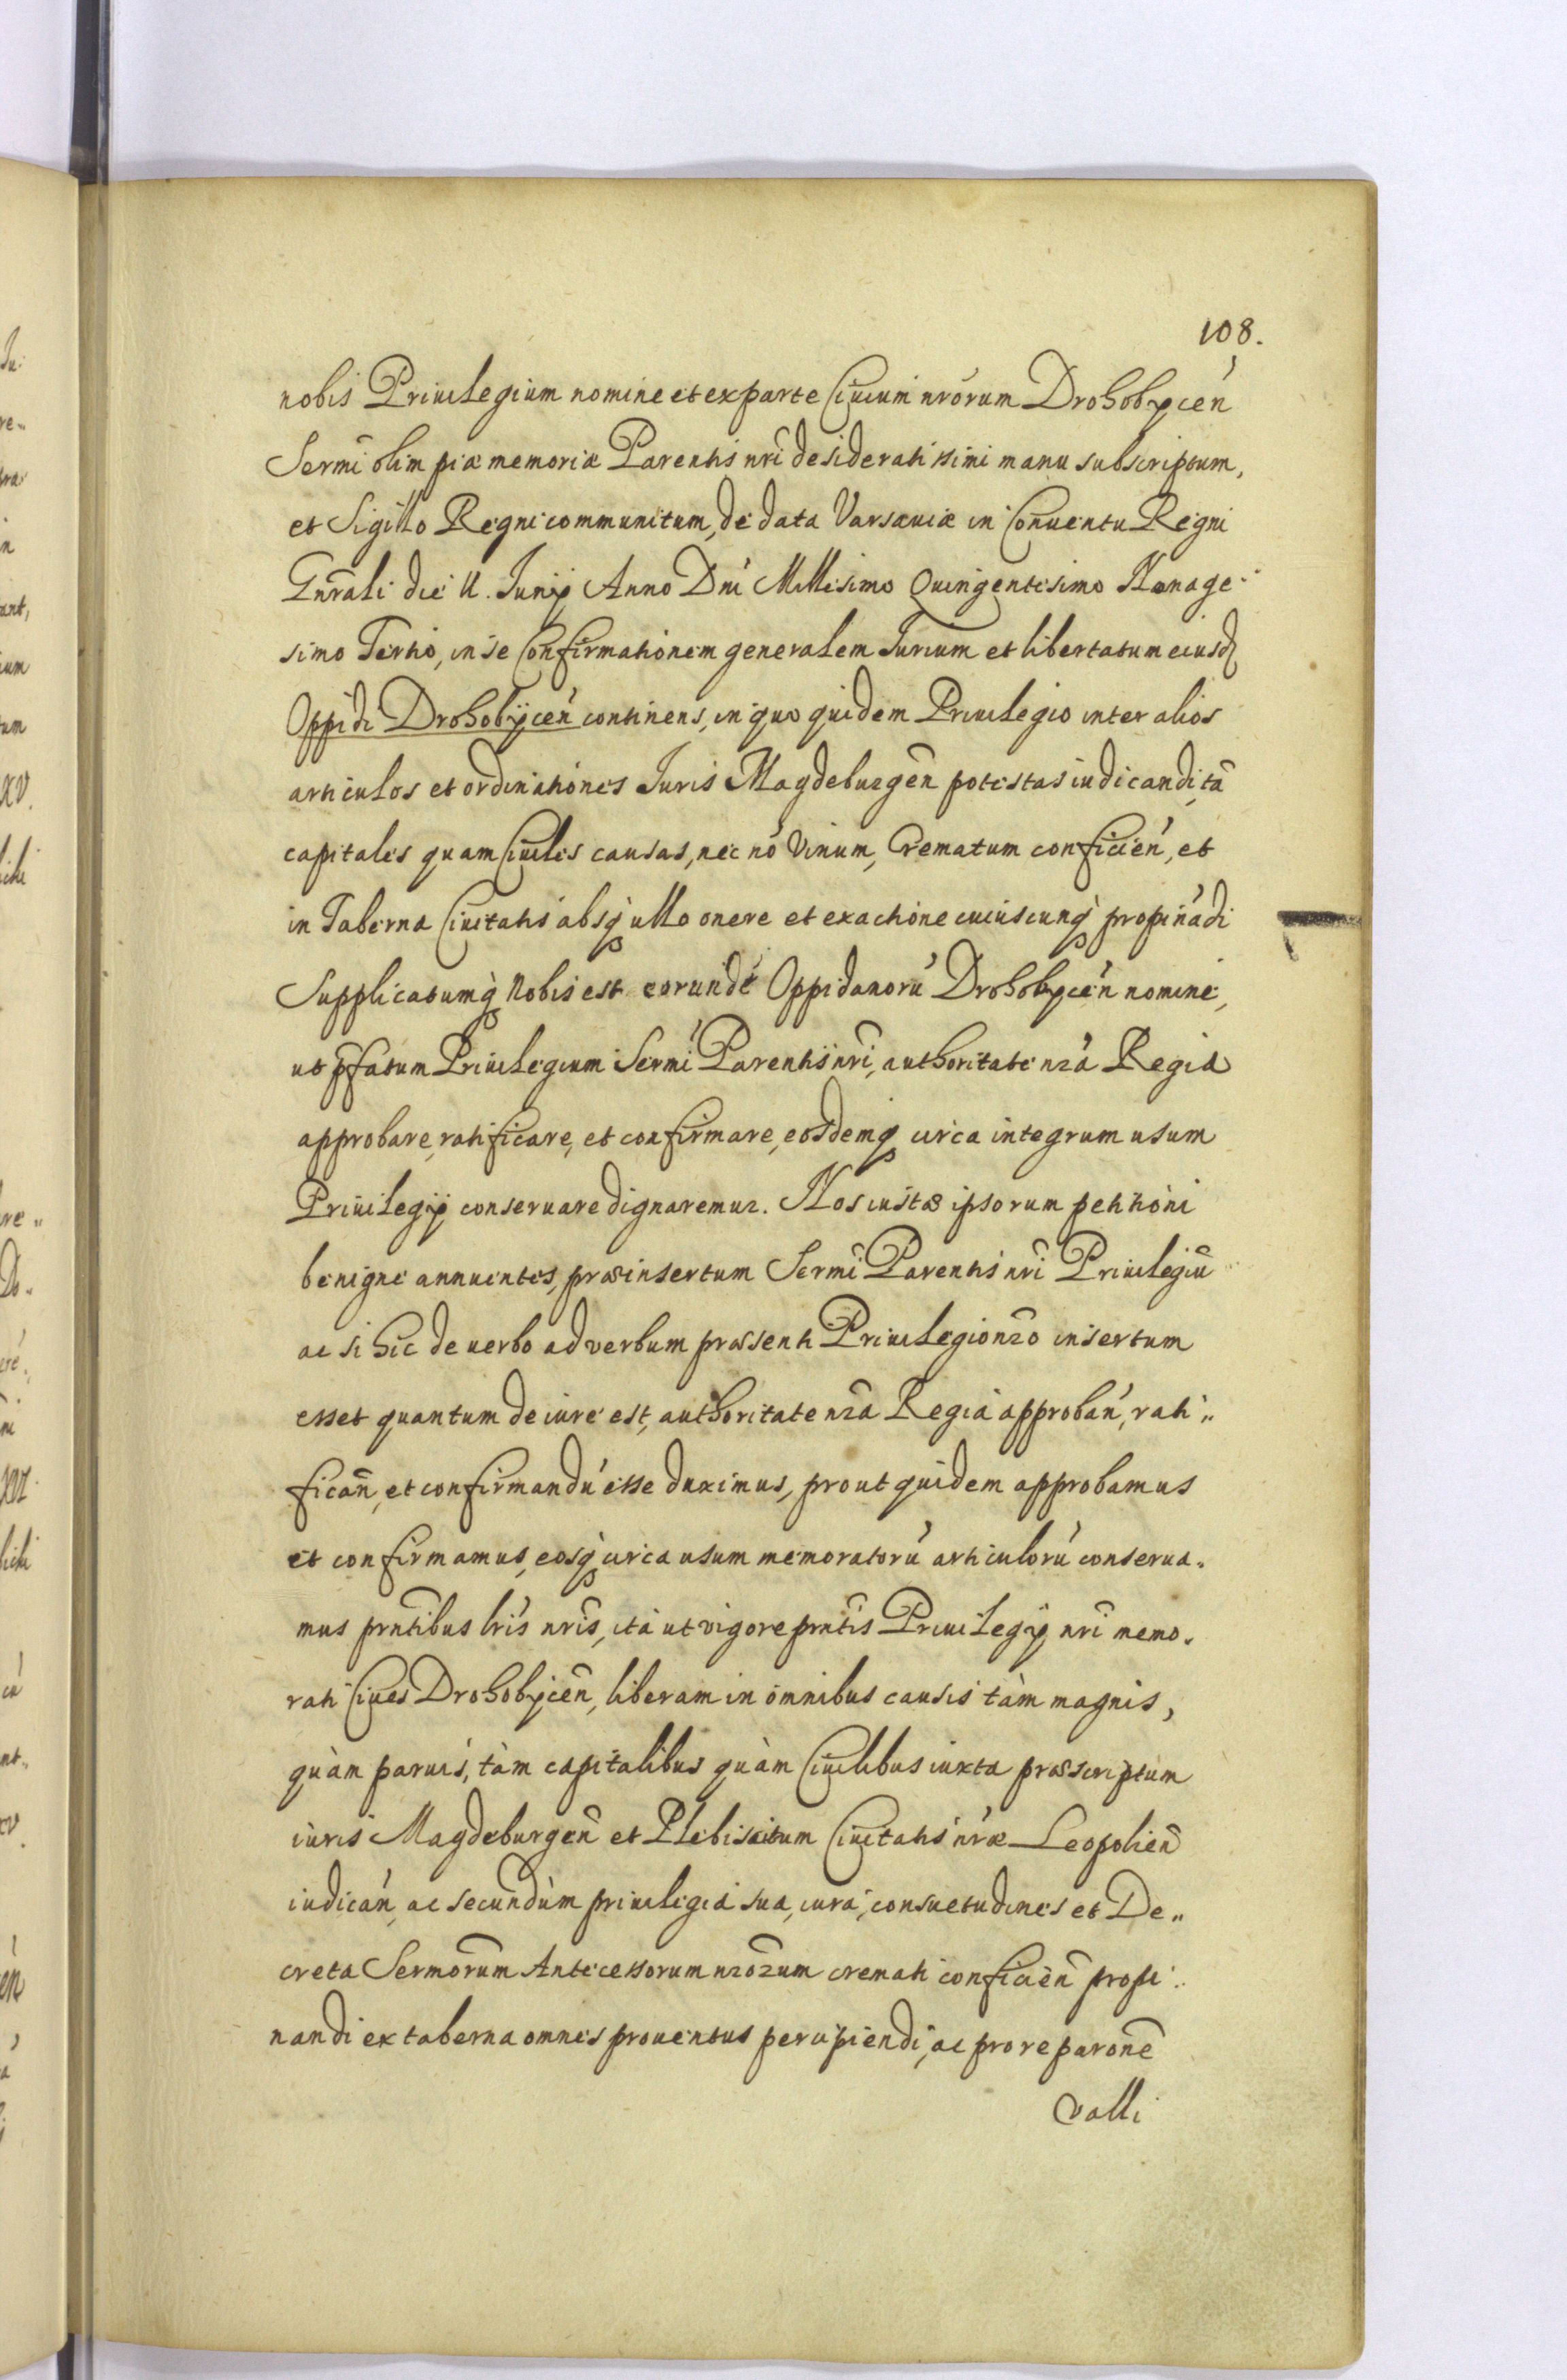 108.
nobis Priuilegium nomine et ex parte Ciuium nrōrum Drohobycen̄
Sermī olim piæ memoriæ Parentis nrī desideratissimi manu subscriptum,
et Sigillo Regni communitum, de data Varsauiæ in Conuentu Regni
Gnrāli die 11. Junij Anno Dnī Millesimo Quingentesimo Nonage-
simo Tertio, in se Confirmationem generalem Jurium et libertatum eiusd
Oppidi Drohobycen̄ continens, in quo quidem Priuilegio inter alios
articulos et ordinationes Juris Magdeburgen̄ potestas iudicandi, tā
capitales quam Ciuiles causas, nec nō Vinum, Crematum conficien̄, et
in Taberna Ciuitatis absq ullo onere et exactione cuiuscunq propinādi
Supplicatumq Nobis est eorundē Oppidanorū Drohobycen̄ nomine,
ut p̄fatum Priuilegium Sermī Parentis nrī, authoritate nrā Regia
approbare, ratificare, et confirmare, eosdemq circa integrum usum
Priuilegij conseruare dignaremur. Nos iustæ ipsorum petitioni
benigne annuentes, præinsertum Sermī Parentis nrī Priuilegiū
ac si hic de uerbo ad verbum præsenti Priuilegio nrō insertum
esset quantum de iure est, authoritate nrā Regia approban̄, rati„
fican̄, et confirmandū esse duximus, prout quidem approbamus
et confirmamus, eosq circa usum memoratorū articulorū conserua-
mus prn̄tibus lrīs nrīs, ità ut vigore prn̄tis Priuilegij nrī memo-
rati Ciues Drohobycen̄, liberam in omnibus causis tàm magnis,
quàm paruis, tàm capitalibus quàm Ciuilibus iuxta præscriptum
iuris Magdeburgen̄ et Plebiscitum Ciuitatis nrǣ Leopolien̄
iudican̄, ac secundùm priuilegia sua, iura, consuetudines et De„
creta Sermōrum Antecessorum nrōrum cremati conficien̄ propi„
nandi ex taberna omnes prouentus percipiendi, ac pro reparonē
Valli